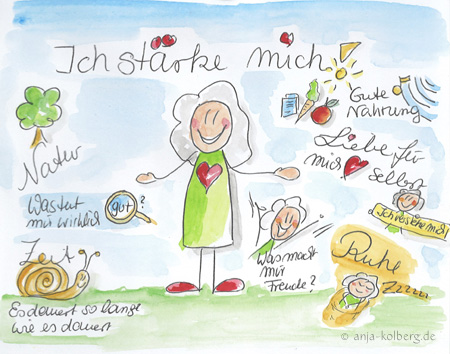 Ich stärke mich!
Gute
Nahrung
Natur
Liebe für
mich
selbst
Was tut
mir wirklich
gut
?
Ich verstehe mich
Zeit
Was macht
mir
Freude?
Ruhe
Zzzzz
Es dauert so lange
wie es dauert
© anja-kolberg.de